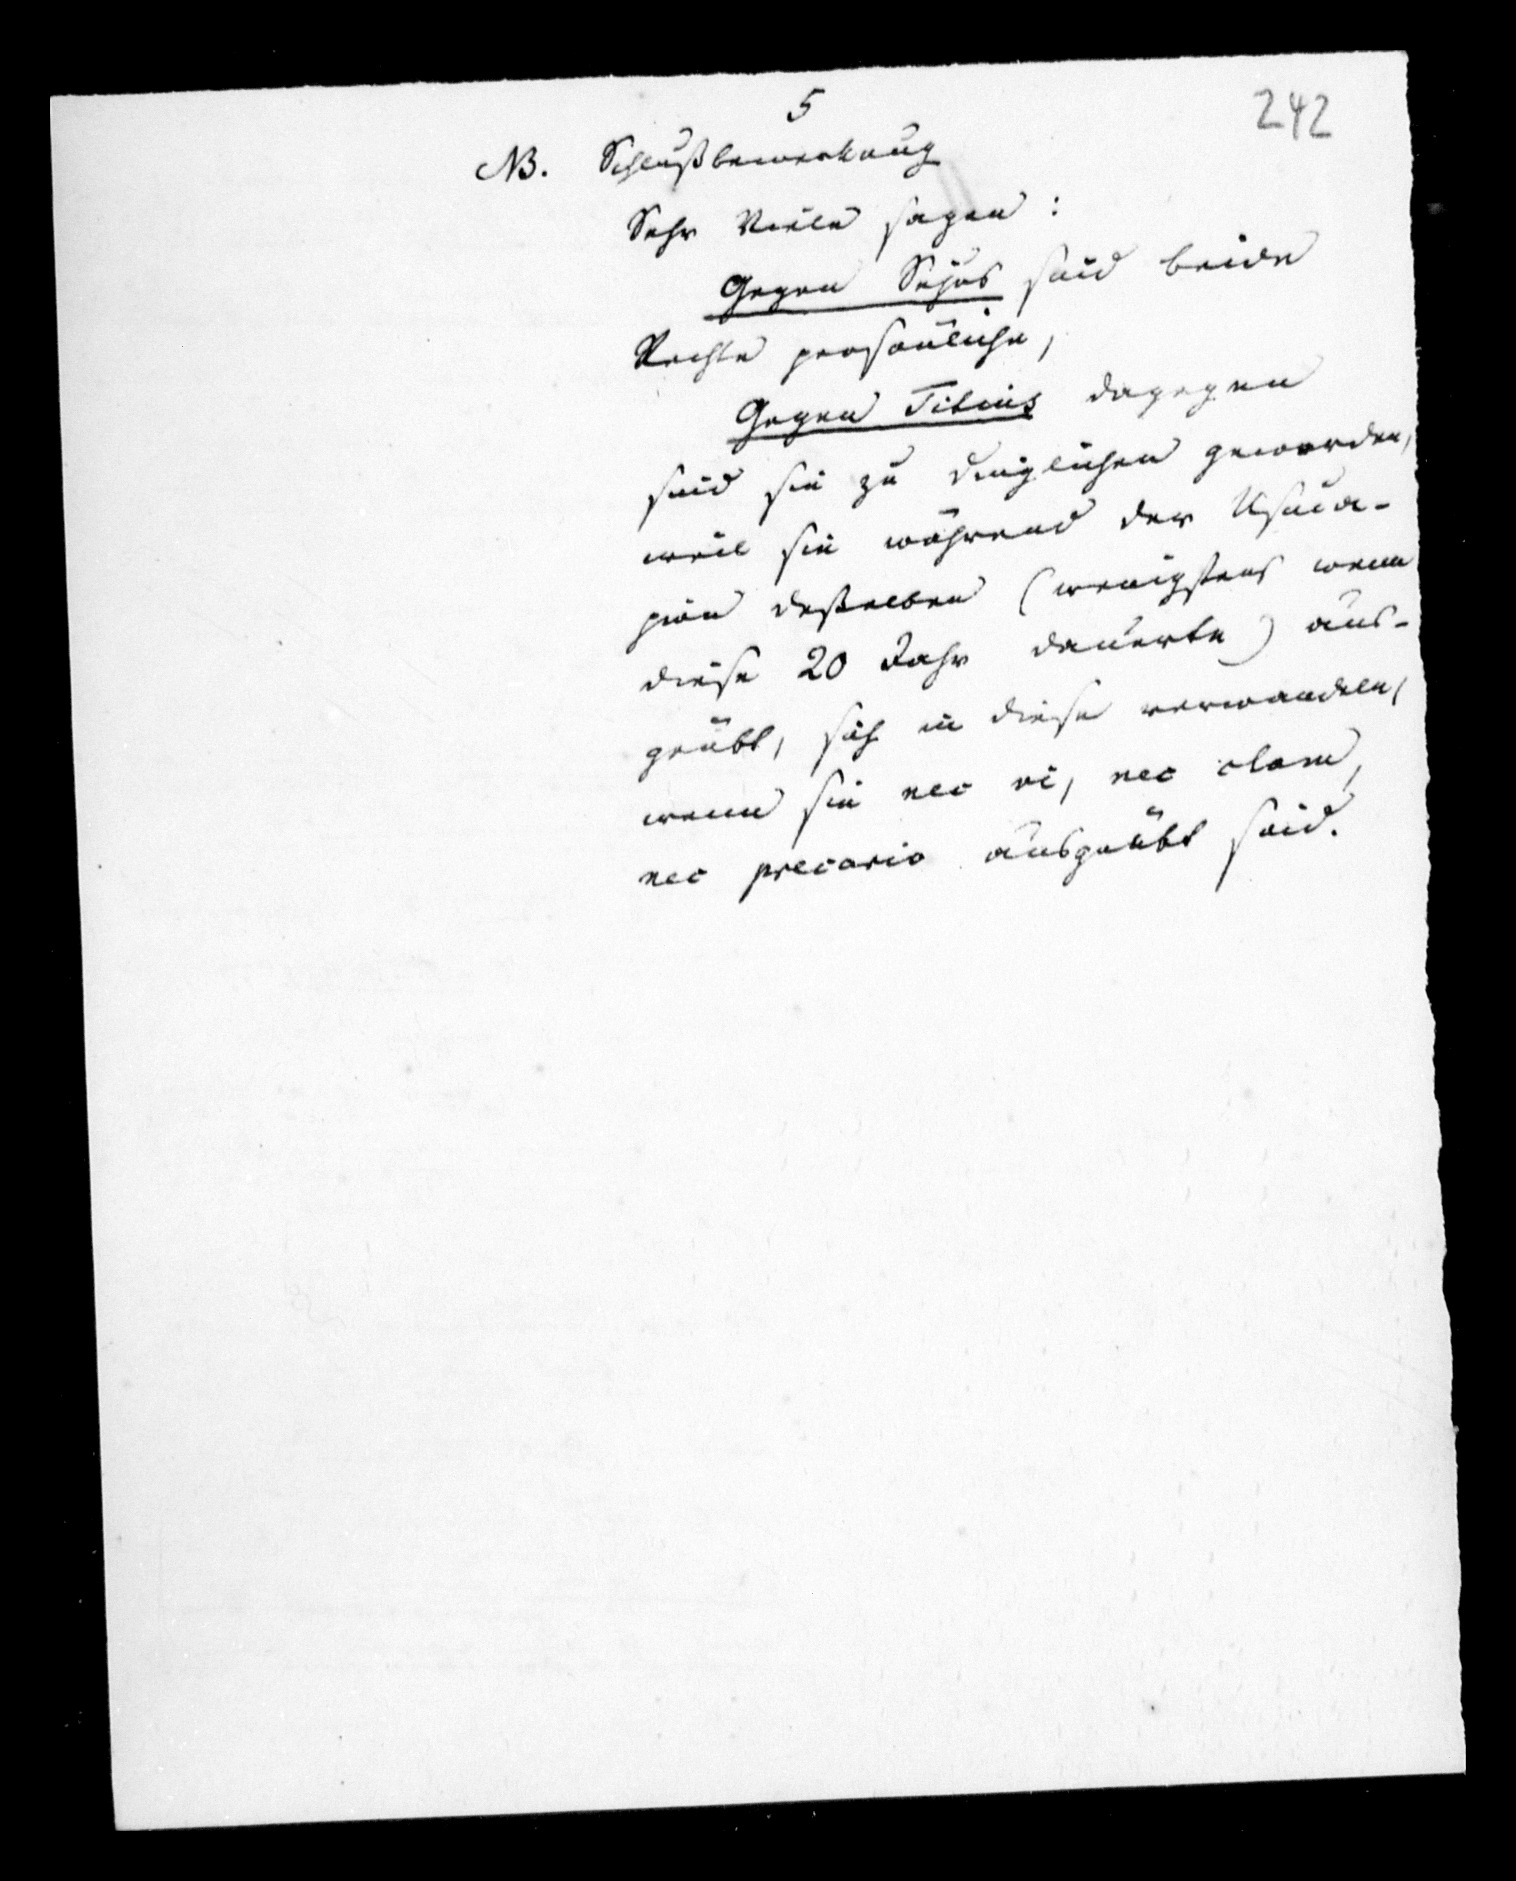 5
242
NB. Schlußbemerkung
Sehr Viele sagen:
Gegen Sejus sind beide
Rechte persönliche,
Gegen Titius dagegen
sind sie zu dinglichen geworden,
weil sie während der Usuca-
pion desselben (wenigstens wenn
diese 20 Jahr dauerte) aus-
geübt, sich in diese verwandeln,
wenn sie nec vi, nec clam,
nec precario ausgeübt sind.